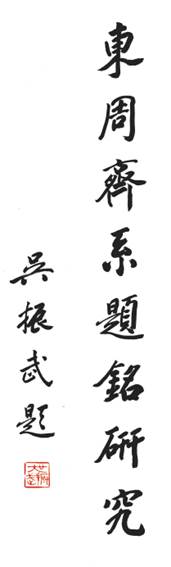 東周齊系題銘研究
吳振武題